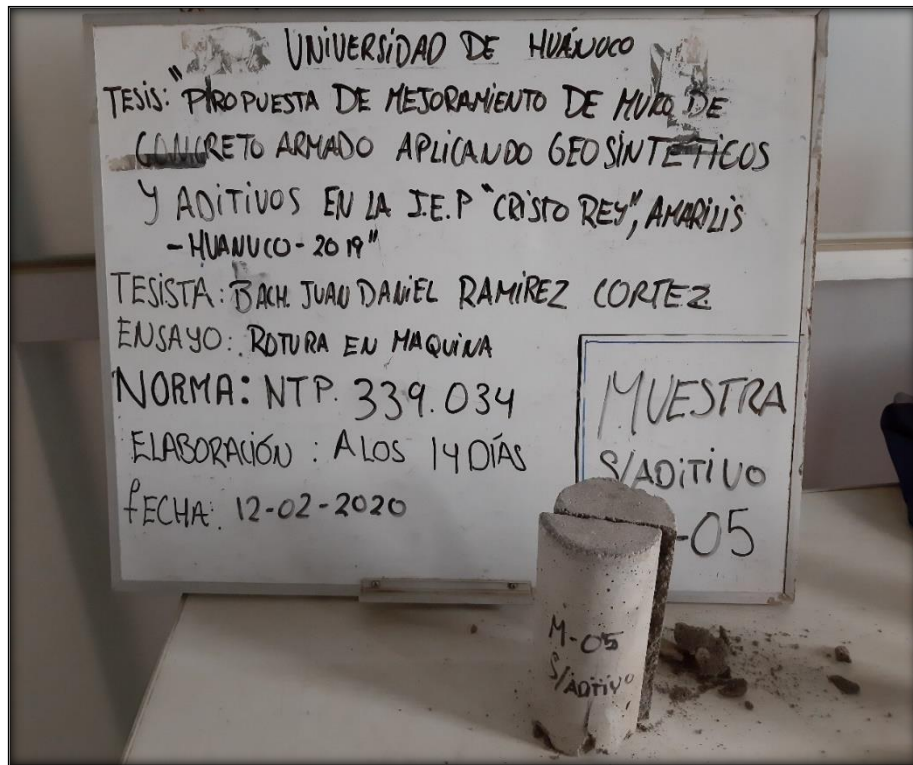 UNIVERSIDAD DE HUÁNUCO
TESIS: "PROPUESTA DE MEJORAMIENTO DE MURO DE
CONCRETO ARMADO APLICANDO GEOSINTÉTICOS
Y ADITIVOS EN LA I.E.P "CRISTO REY", AMARILIS
-HUANUCO-2019"
TESISTA: BACH. JUAN DANIEL RAMIREZ CORTEZ
ENSAYO: ROTURA EN MAQUINA
NORMA: NTP. 339.034
ELABORACIÓN : A LOS 14 DÍAS
FECHA: 12-02-2020
MUESTRA
S/ADITIVO
-05
M-05
S/ADITIVO